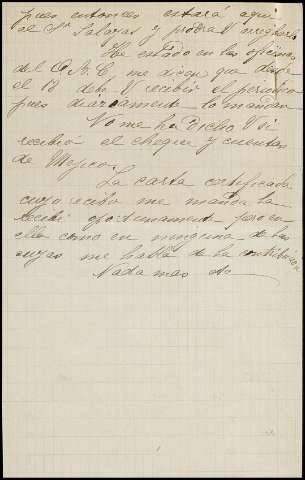 pues entonces estará aquí
el Sr Salazar y podra V arreglarlo
He estado en las oficinas
del A. B. C me dicen que desde
el 18 debe V recibir el periodico
pues diariamente lo mandan
No me ha dicho V si
recibió el cheque y cuentas
de Mejico.
La carta certificada
cuyo recibo me manda la
recibi oportunamente pero en
ella como en ninguna de las
suyas me habla de la contribucion
Nada mas